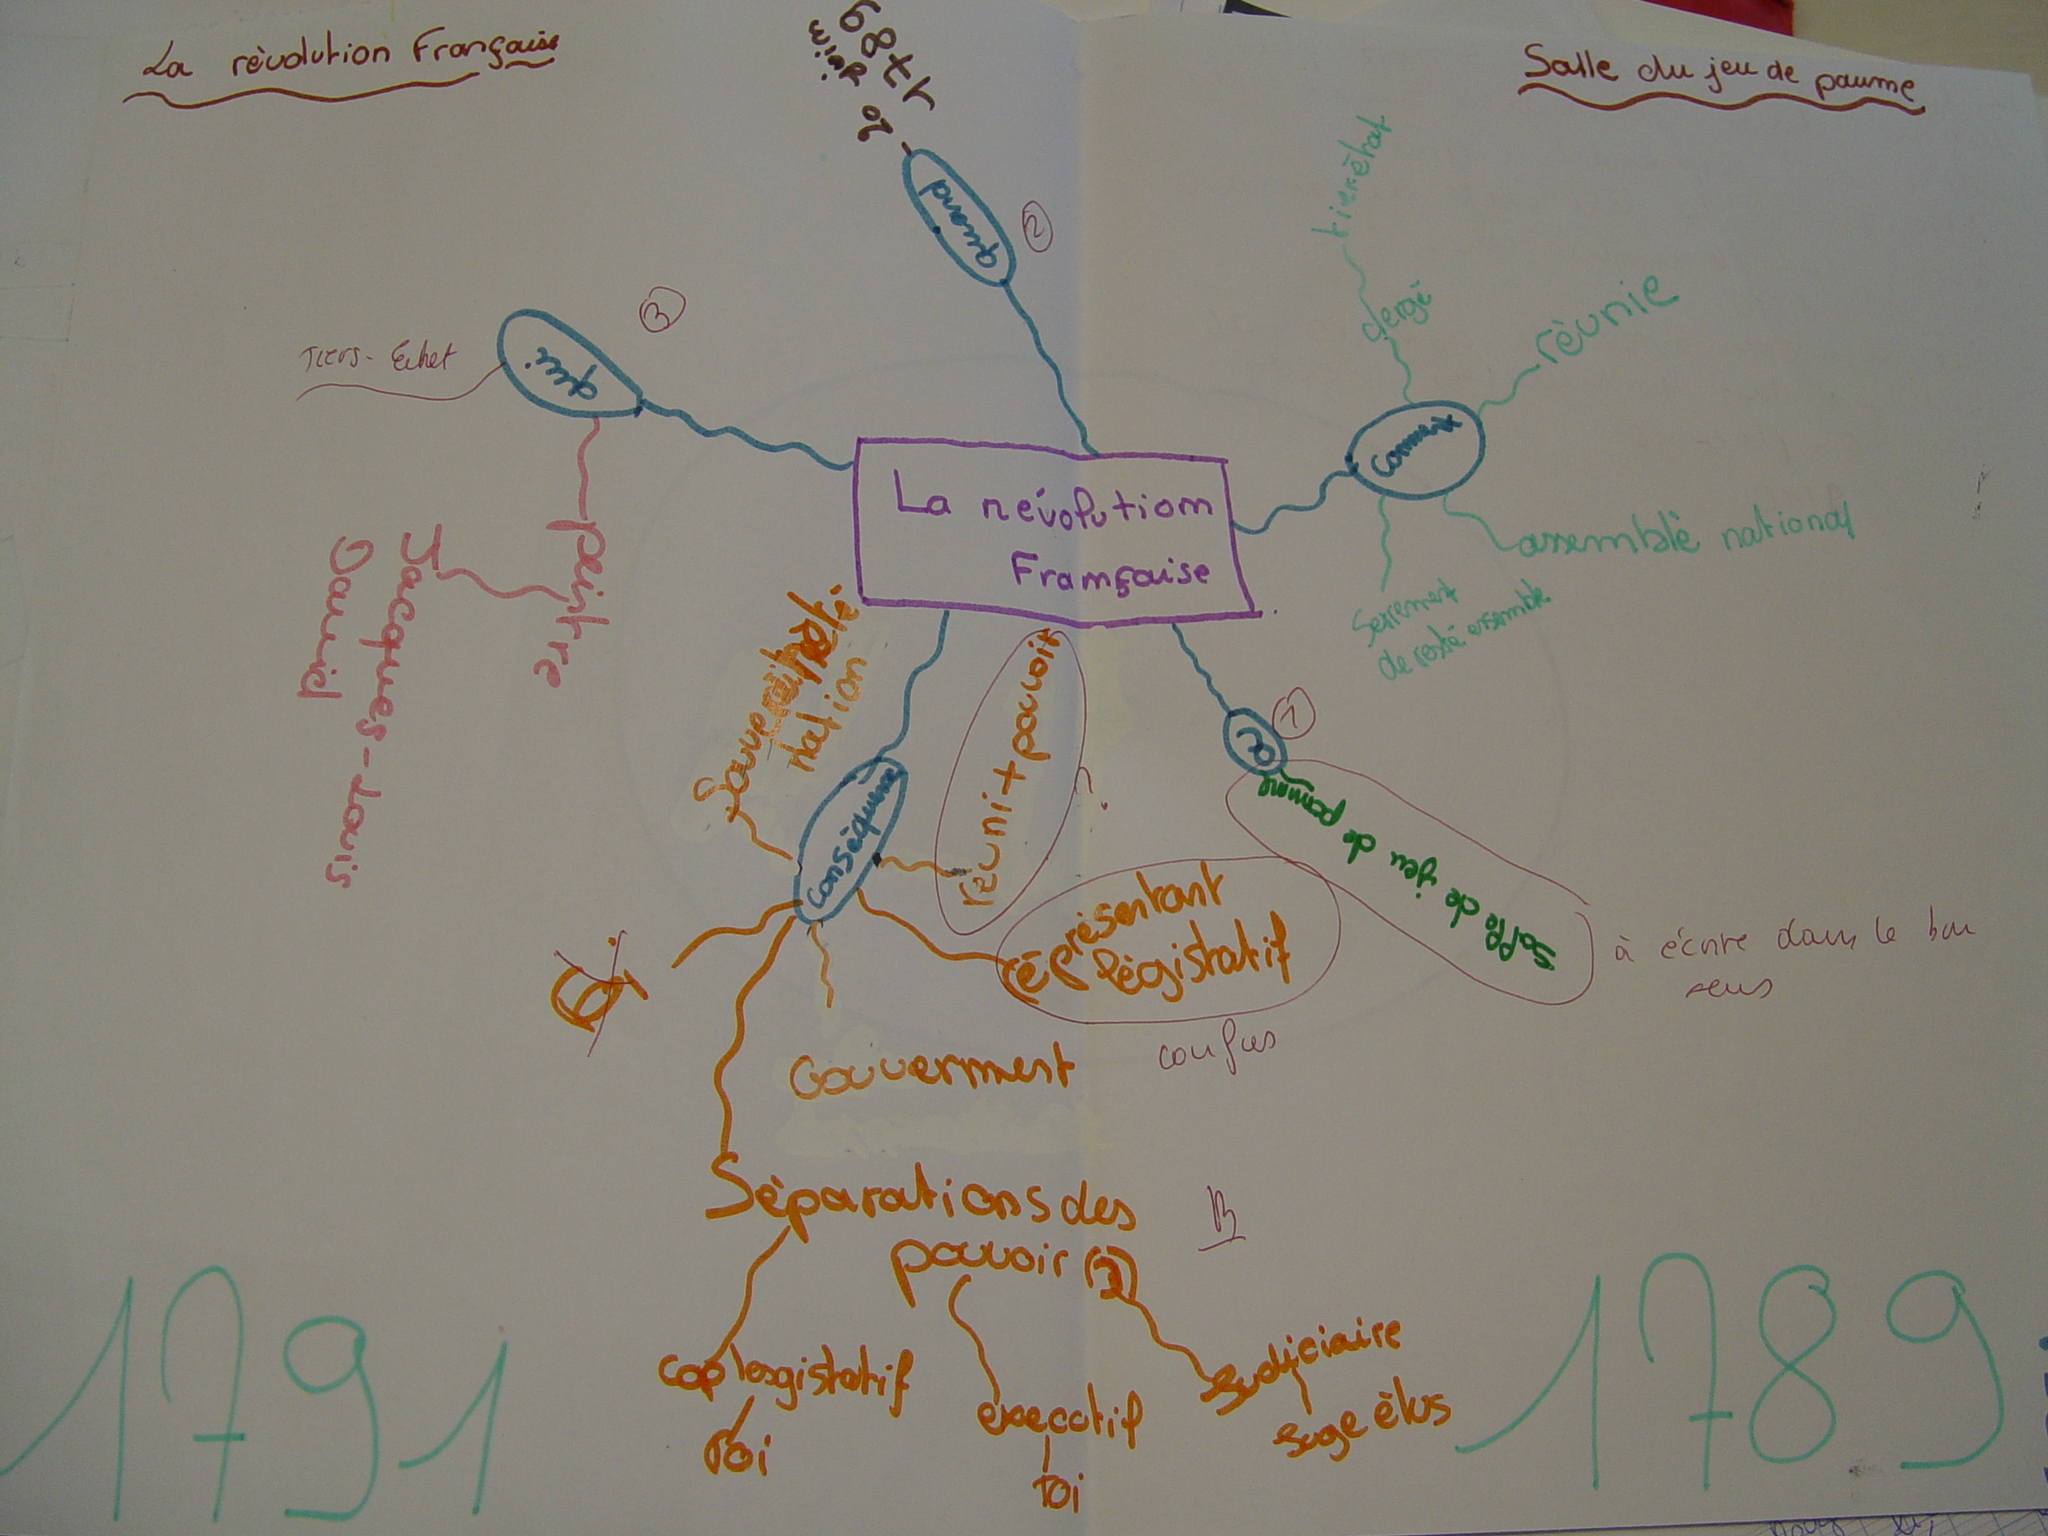 La rèvolution Française
Salle du jeu de paume
20 juin
1789
quand
2
tiersétat
clergé
réunie
3
Tiers-Echet
qui
comment
La révolution
Française
assemblè national
Serrement
de resté ensemble
peintre
Jacques-Louis
David
Souveraineté
nation
réunit + pouvoir
?
où
1
Salle de jeu de pomme
conséquence
réprésentant
législatif
à écrire dans le bon
sens
confus
Gouverment
Séparations des
pouvoir (3)
B
legistatif
roi
executif
roi
Judiciaire
Juge èlus
1791
1789